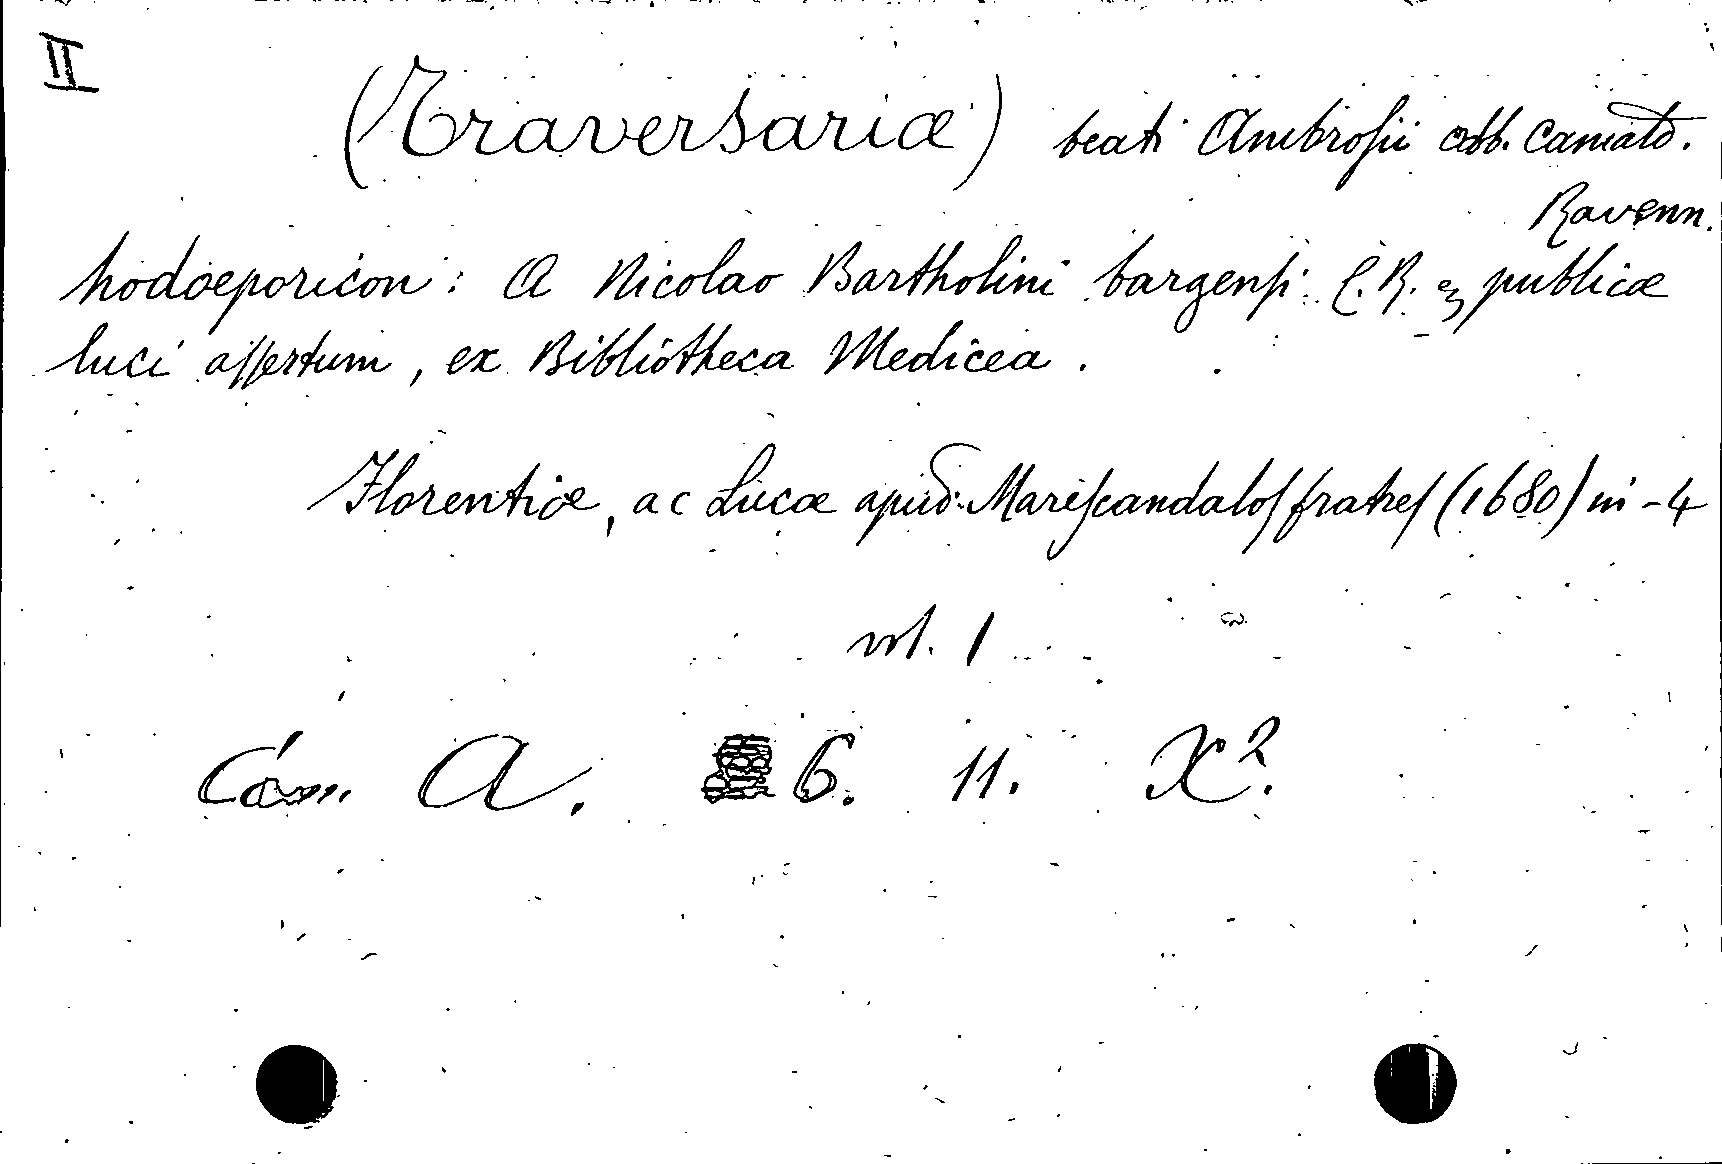 II
(Traversariæ) beati Ambrosii abb. Camald.
Ravenn.
hodoeporicon: A Nicolao Bartholini bargensi C.R. publicæ
luci assertum, ex Bibliotheca Medicea.
Florentiæ, ac Lucæ apud Mariscandalos fratres (1680) in-4
vol. 1
Cam. A. 6. 11. X².